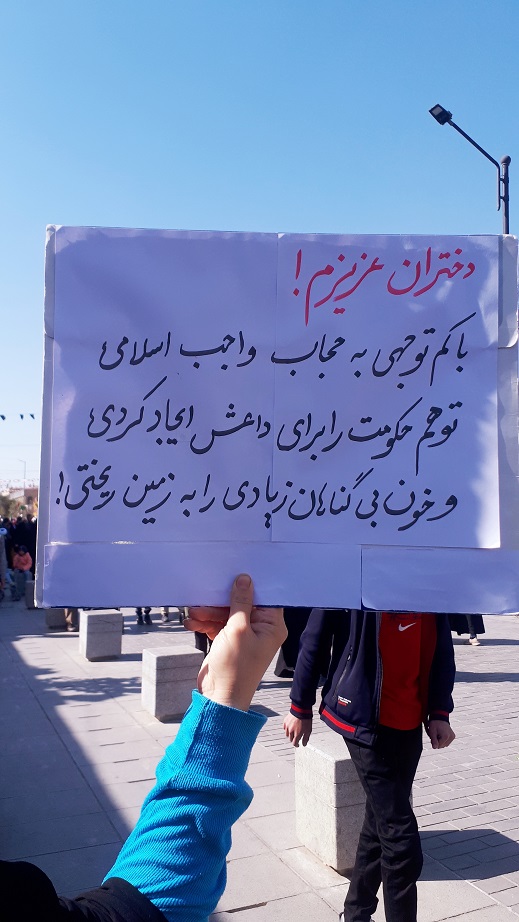 دختران عزیزم!
با کم توجهی به حجاب واجب اسلامی
توهم حکومت را برای داعش ایجاد کردی
و خون بی گناهان زیادی را به زمین ریختی!